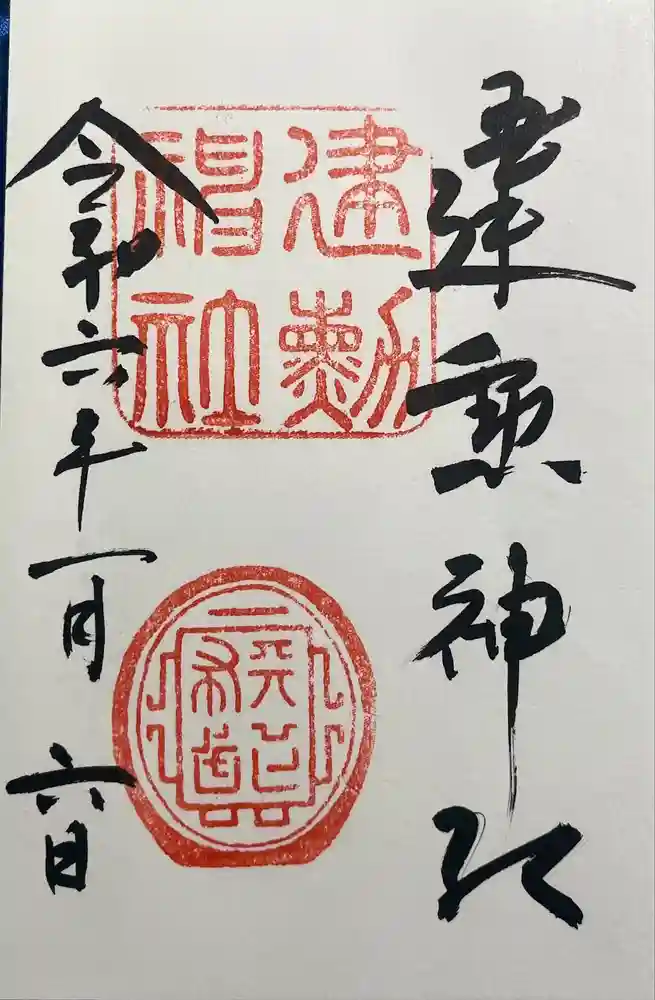 建勲神社
令和六年一月六日
建勲
神社
天下
布武